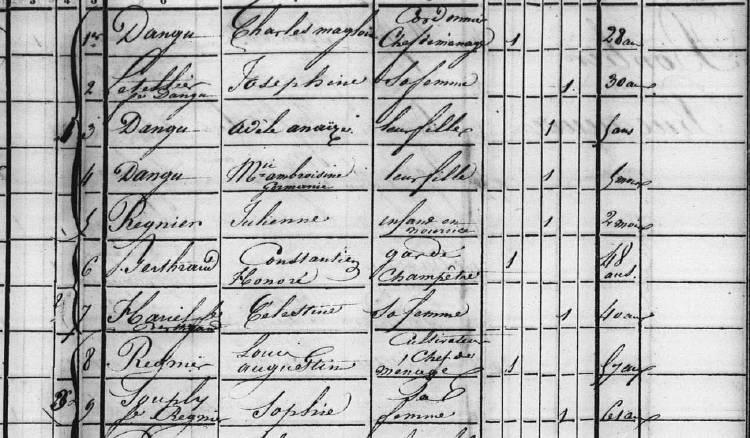 1er Dangu Charles magloire Cordonnier Chef de menage 1 28 ans
2 Letellier fe Dangu Joséphine sa femme 1 30 ans
1 3 Dangu adèle anaïze leur fille 1 5 ans
4 Dangu Mie ambroisine germanie leur fille 1 5 mois
5 Regnier Julienne enfant en nourrice 1 2 mois
6 Berthraud Constantien Honoré garde Champêtre 1 48 ans.
7 fe Celestine sa femme 1 40 ans
8 Regnier Louis augustin Cultivateur Chef de menage 1 57 ans
9 fe Regnier Sophie sa femme 1 61 ans